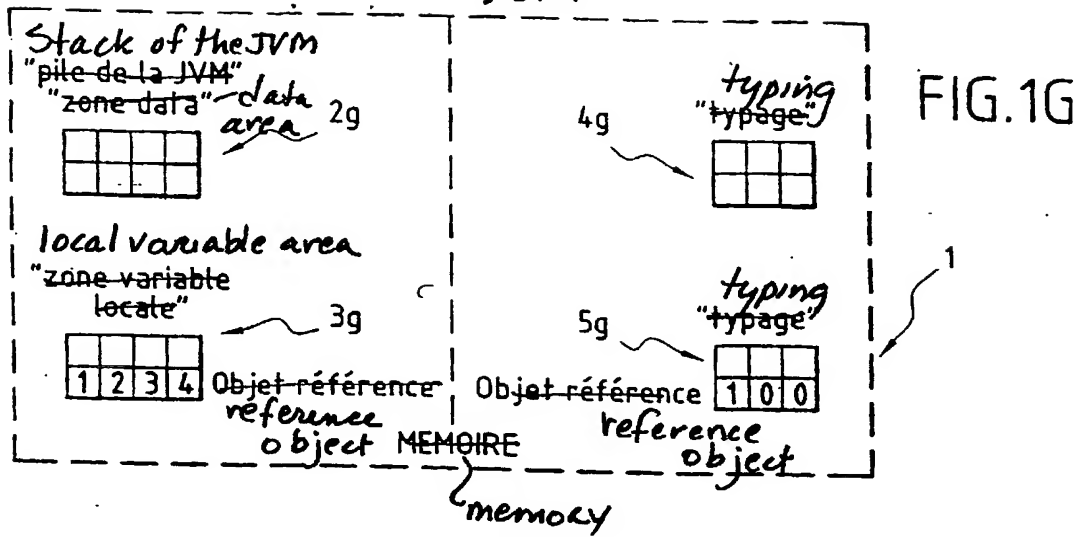 Stack of the JVM
"pile de la JVM"
"zone data" data
area
2g
local variable area
"zone variable
locale"
3g
1 2 3 4 Objet référence
reference
object
MEMOIRE
memory
typing
"typage"
4g
typing
"typage"
5g
Objet référence 1 0 0
reference
object
1
FIG.1G